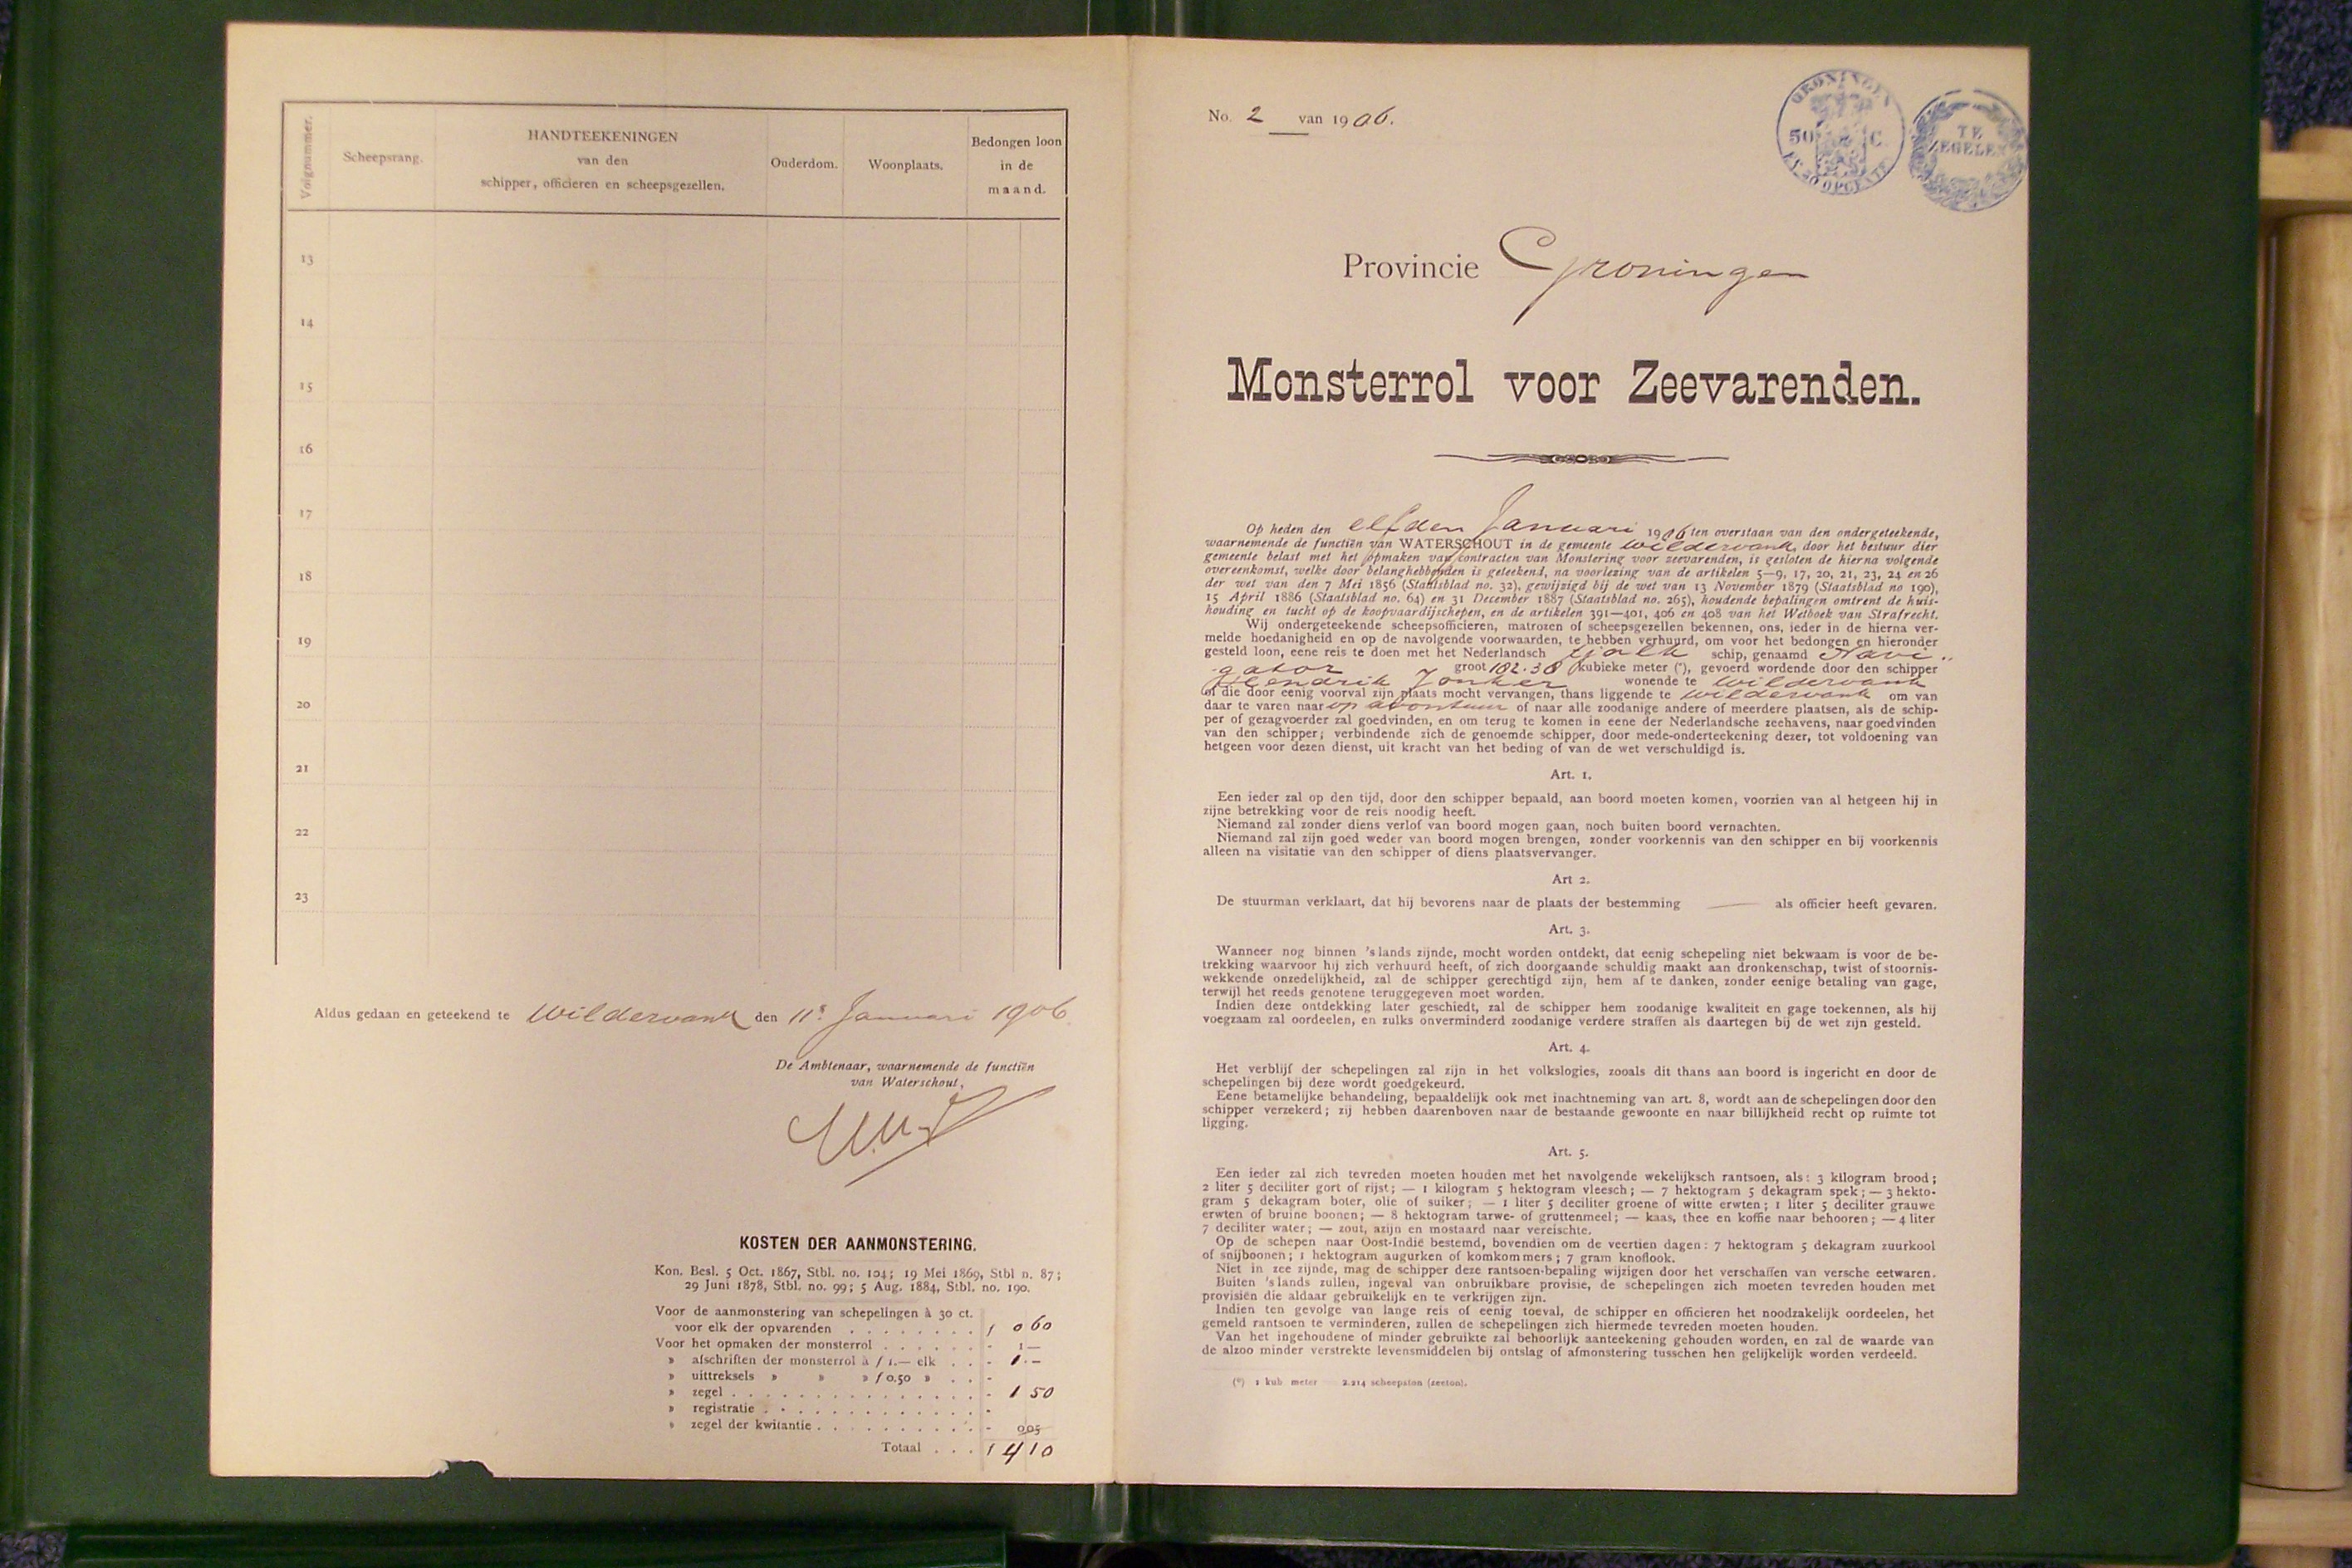 Volgnummer.
Scheepsrang.
HANDTEEKENINGEN
van den
schipper, officieren en scheepsgezellen.
Ouderdom.
Woonplaats.
Bedongen loon
in de
maand.
13
14
15
16
17
18
19
20
21
22
23
Aldus gedaan en geteekend te Wildervank den 11e Januari 1906
De Ambtenaar, waarnemende de functiën
van Waterschout,
KOSTEN DER AANMONSTERING.
Kon. Besl. 5 Oct. 1867, Stbl. no. 104; 19 Mei 1869, Stbl n. 87;
29 Juni 1878, Stbl. no. 99; 5 Aug. 1884, Stbl. no. 190.
Voor de aanmonstering van schepelingen à 30 ct.
voor elk der opvarenden . . . . . . . . f 0 60
Voor het opmaken der monsterrol . . . . . . - 1 —
» afschriften der monsterrol à f 1.— elk . . - 1 . –
» uittreksels » » » f 0.50 » . . -
» zegel . . . . . . . . . . . . . . . . - 1 50
» registratie . . . . . . . . . . . . . . -
» zegel der kwitantie . . . . . . . . . . - 0 05
Totaal . . . f 4 10
No. 2 van 1906.
GRONINGEN
50 C.
EN 50 OPCENTEN
TE
ZEGELEN
Provincie Groningen
Monsterrol voor Zeevarenden.
Op heden den elfden Januari 1906 ten overstaan van den ondergeteekende,
waarnemende de functiën van WATERSCHOUT in de gemeente Wildervank, door het bestuur dier
gemeente belast met het opmaken van contracten van Monstering voor zeevarenden, is gesloten de hierna volgende
overeenkomst, welke door belanghebbenden is geteekend, na voorlezing van de artikelen 5—9, 17, 20, 21, 23, 24 en 26
der wet van den 7 Mei 1856 (Staatsblad no. 32), gewijzigd bij de wet van 13 November 1879 (Staatsblad no 190),
15 April 1886 (Staatsblad no. 64) en 31 December 1887 (Staatsblad no. 265), houdende bepalingen omtrent de huis-
houding en tucht op de koopvaardijschepen, en de artikelen 391—401, 406 en 408 van het Wetboek van Strafrecht.
Wij ondergeteekende scheepsofficieren, matrozen of scheepsgezellen bekennen, ons, ieder in de hierna ver-
melde hoedanigheid en op de navolgende voorwaarden, te hebben verhuurd, om voor het bedongen en hieronder
gesteld loon, eene reis te doen met het Nederlandsch tjalk schip, genaamd Navi„
gator groot 182.38 kubieke meter (*), gevoerd wordende door den schipper
Hendrik Jonker wonende te Wildervank
of die door eenig voorval zijn plaats mocht vervangen, thans liggende te Wildervank om van
daar te varen naar op avontuur of naar alle zoodanige andere of meerdere plaatsen, als de schip-
per of gezagvoerder zal goedvinden, en om terug te komen in eene der Nederlandsche zeehavens, naar goedvinden
van den schipper; verbindende zich de genoemde schipper, door mede-onderteekening dezer, tot voldoening van
hetgeen voor dezen dienst, uit kracht van het beding of van de wet verschuldigd is.
Art. 1.
Een ieder zal op den tijd, door den schipper bepaald, aan boord moeten komen, voorzien van al hetgeen hij in
zijne betrekking voor de reis noodig heeft.
Niemand zal zonder diens verlof van boord mogen gaan, noch buiten boord vernachten.
Niemand zal zijn goed weder van boord mogen brengen, zonder voorkennis van den schipper en bij voorkennis
alleen na visitatie van den schipper of diens plaatsvervanger.
Art 2.
De stuurman verklaart, dat hij bevorens naar de plaats der bestemming —— als officier heeft gevaren.
Art. 3.
Wanneer nog binnen 's lands zijnde, mocht worden ontdekt, dat eenig schepeling niet bekwaam is voor de be-
trekking waarvoor hij zich verhuurd heeft, of zich doorgaande schuldig maakt aan dronkenschap, twist of stoornis-
wekkende onzedelijkheid, zal de schipper gerechtigd zijn, hem af te danken, zonder eenige betaling van gage,
terwijl het reeds genotene teruggegeven moet worden.
Indien deze ontdekking later geschiedt, zal de schipper hem zoodanige kwaliteit en gage toekennen, als hij
voegzaam zal oordeelen, en zulks onverminderd zoodanige verdere straffen als daartegen bij de wet zijn gesteld.
Art. 4.
Het verblijf der schepelingen zal zijn in het volkslogies, zooals dit thans aan boord is ingericht en door de
schepelingen bij deze wordt goedgekeurd.
Eene betamelijke behandeling, bepaaldelijk ook met inachtneming van art. 8, wordt aan de schepelingen door den
schipper verzekerd; zij hebben daarenboven naar de bestaande gewoonte en naar billijkheid recht op ruimte tot
ligging.
Art. 5.
Een ieder zal zich tevreden moeten houden met het navolgende wekelijksch rantsoen, als: 3 kilogram brood;
2 liter 5 deciliter gort of rijst; — 1 kilogram 5 hektogram vleesch; — 7 hektogram 5 dekagram spek; — 3 hekto-
gram 5 dekagram boter, olie of suiker; — 1 liter 5 deciliter groene of witte erwten; 1 liter 5 deciliter grauwe
erwten of bruine boonen; — 8 hektogram tarwe- of gruttenmeel; — kaas, thee en koffie naar behooren; — 4 liter
7 deciliter water; — zout, azijn en mostaard naar vereischte.
Op de schepen naar Oost-Indië bestemd, bovendien om de veertien dagen: 7 hektogram 5 dekagram zuurkool
of snijboonen; 1 hektogram augurken of komkommers; 7 gram knoflook.
Niet in zee zijnde, mag de schipper deze rantsoen-bepaling wijzigen door het verschaffen van versche eetwaren.
Buiten 's lands zullen, ingeval van onbruikbare provisie, de schepelingen zich moeten tevreden houden met
provisiën die aldaar gebruikelijk en te verkrijgen zijn.
Indien ten gevolge van lange reis of eenig toeval, de schipper en officieren het noodzakelijk oordeelen, het
gemeld rantsoen te verminderen, zullen de schepelingen zich hiermede tevreden moeten houden.
Van het ingehoudene of minder gebruikte zal behoorlijk aanteekening gehouden worden, en zal de waarde van
de alzoo minder verstrekte levensmiddelen bij ontslag of afmonstering tusschen hen gelijkelijk worden verdeeld.
(*) 1 kub meter 2.214 scheepston (zeeton).